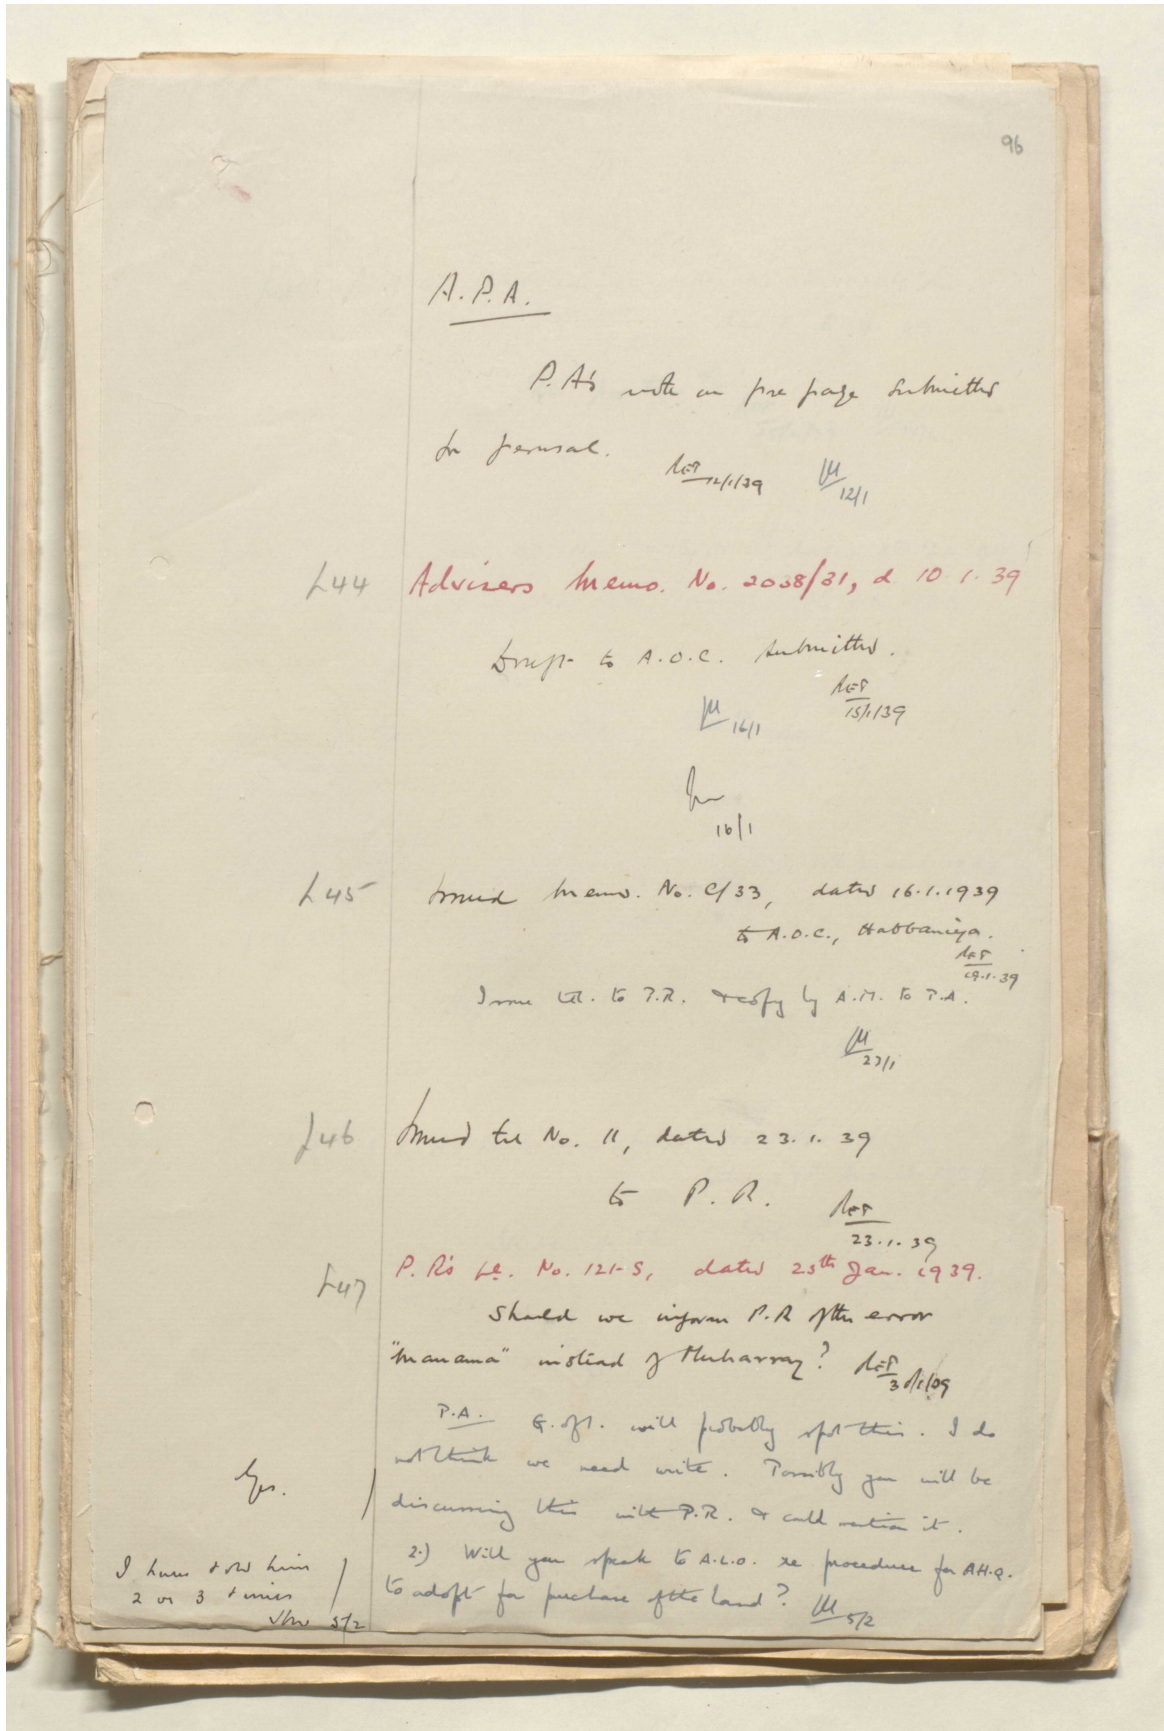 96
A.P.A.
P.A's note on pre page submitted
for perusal.
12/1/39
12/1
L44 Advisers Memo. No. 2038/31, d 10.1.39
Draft to A.O.C. submitted.
15/1/39
16/1
16/1
L45 Issued Memo. No. C/33, dated 16.1.1939
to A.O.C., Habbaniya.
19.1.39
Issue tel. to P.R. & copy by A.M. to P.A.
23/1
L46 Issued tel No. 11, dated 23.1.39
to P.R.
23.1.39
L47 P.R's Le. No. 121-S, dated 25th Jan. 1939.
Should we inform P.R of the error
"Manama" instead of Muharraq?
P.A. G. of I. will probably spot this. I do
not think we need write. Possibly you will be
discussing this with P.R. & could mention it.
Yes.
2.) Will you speak to A.L.O. re procedure for A.H.Q.
to adopt for purchase of the land?
5/2
I have told him
2 or 3 times
5/2